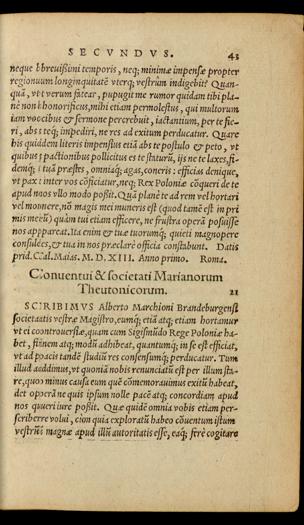 SECVNDVS. 43
neque bbreuißimi temporis, neq; minimæ impensæ propter
regionuum longinquitatē vterq; vestrūm indigebit? Quan-
quā, vt verum fatear, pupugit me rumor quidam tibi pla-
nè non hhonorificus, mihi etiam permolestus, qui multorum
iam voccibus & sermone percrebuit, iactantium, per te fie-
ri, abs te q; impediri, ne res ad exitum perducatur. Quare
his quiddem literis impensius etiā abs te postulo & peto, vt
quibus pactionibus pollicitus es te staturū, ijs ne te laxes, fi-
demq; i tuā præstes, omniaq; agas, coneris: efficias denique,
vt pax inter vos cōficiatur, neq; Rex Poloniæ cōqueri de te
apud nnos vllo modo poßit. Quā planè te ad rem vel hortari
vel monnere, nō magis mei muneris est (quod tamē est in pri
mis meū) quàm tui etiam efficere, ne frustra operā posuisse
nos apppareat. Ita enim & tuæ tuorumq; quieti magnopere
consulēs, & tua in nos præclarè officia constabunt. Datis
prid. Cal. Maias. M. D. XIII. Anno primo. Roma.
Conuentui & societati Marianorum
Theutonicorum. 21
SCRIBIMVS Alberto Marchioni Brandeburgensi
societaatis vestræ Magistro, eumq; etiā atq; etiam hortamur
vt ei ccontrouersiæ, quam cum Sigismūdo Rege Poloniæ ha-
bet, finem atq; modū adhibeat, quantumq; in se est efficiat,
vt ad pacis tandē studiū res consensumq; perducatur. Tum
illud adddimus, vt quoniā nobis renunciatū est per illum sta-
re, quo minus causa eum quē cōmemorauimus exitū habeat,
det operā ne quis ipsum nolle pacē atq; concordiam apud
nos queri iure poßit. Quæ quidē omnia vobis etiam per-
scriberre volui, cùm quia exploratū habeo cōuentum istum
vestrūm magnæ apud illū autoritatis esse, eaq; ferè cogitare